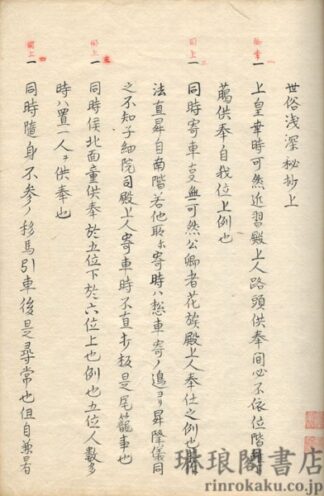 世俗浅深秘抄上
一上皇幸時可然近習殿上人路頭供奉間必不依位階
臈供奉自我位上例也
同時寄車支無可然公卿者花族殿上人奉仕之例也
法直昇自南階若他所ニ寄時ハ懸車寄ノ邉ヨリ昇降儀同
之不知子細院司殿上人寄車時不直歩板是尾籠事也
一同時候北面童供奉於五位下於六位上也例也五位人數多
時ハ置一人ヰ供奉也
一同時隨身不参ノ移馬引車後是尋常也但自兼
琳琅閣書店
rinrokaku.co.jp